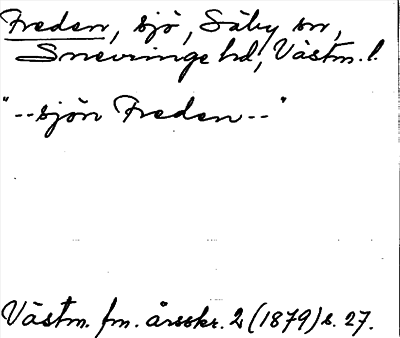 Freden, sjö, Säby sn,
Snevringe hd, Västm. l.
"--sjön Freden--"
Västm. fm. årsskr. 2 (1879) s. 27.